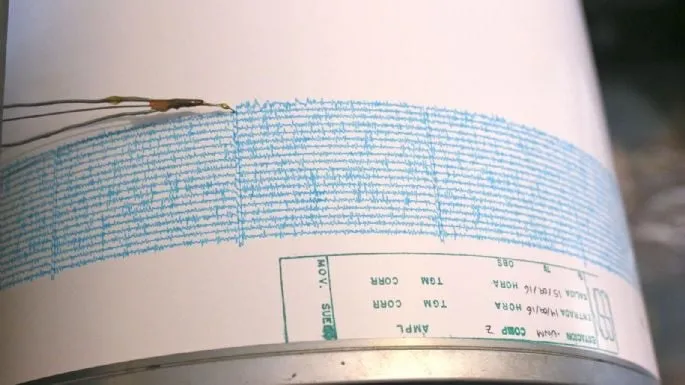 ESTACION UNM COMP Z AMPL
ENTRADA HORA TGM CORR
SALIDA HORA TGM CORR
OBS
MOV.